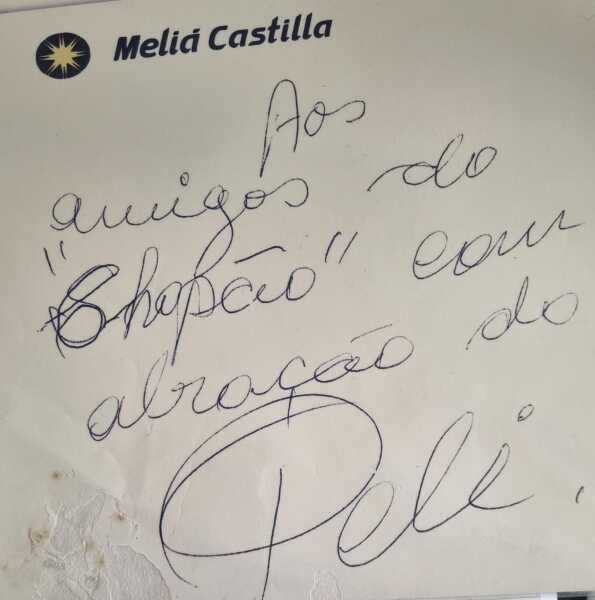 Meliá Castilla
Aos
amigos do
"Chopão" com
abração do
Pelé.